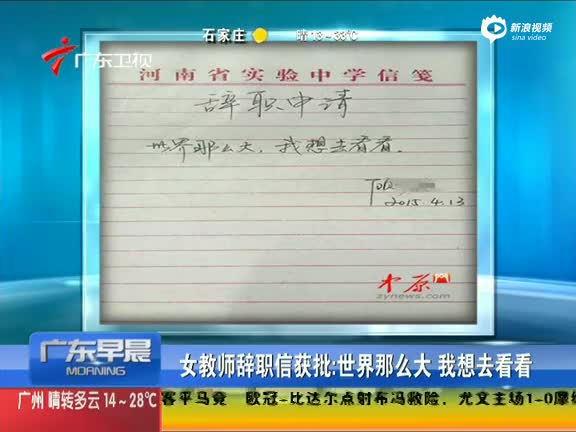 石家庄 晴 13~33℃
新浪视频
sina video
广东卫视
河南省实验中学信笺
辞职申请
世界那么大，我想去看看。
2015.4.13
中原网
zynews.com
广东早晨
MORNING
女教师辞职信获批:世界那么大 我想去看看
广州 晴转多云 14~28℃
客平马竞 欧冠-比达尔点射布冯救险，尤文主场1-0摩纳